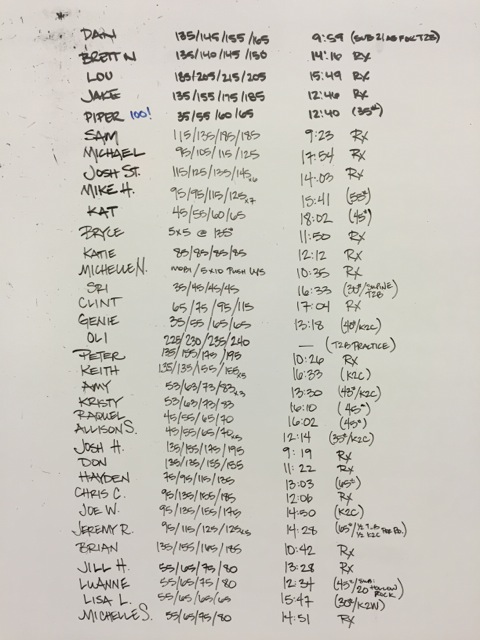 DAN 135/145/155/165 9:59 (SUB 21 ABS FOR T2B)
BRETT N 135/140/145/150 14:16 RX
LOU 185/205/215/205 15:49 RX
JAKE 135/155/175/185 12:46 RX
PIPER 100! 35/55/60/65 12:40 (35#)
SAM 115/135/185/185 9:23 RX
MICHAEL 95/105/115/125 17:54 RX
JOSH ST. 115/125/135/145x6 14:03 RX
MIKE H. 95/95/115/125x7 15:41 (55#)
KAT 45/55/60/65 18:02 (45#)
BRYCE 5x5 @ 135# 11:50 RX
KATIE 85/85/85/85 12:12 RX
MICHELLE N. MOBI / 5x10 PUSH UPS 10:35 RX
SRI 35/45/45/45 16:33 (30#/SUPINE T2B)
CLINT 65/75/95/115 17:04 RX
GENIE 35/55/65/65 13:18 (40#/K2C)
OLI 225/230/235/240 — (T2B PRACTICE)
PETER 135/155/175/195 10:26 RX
KEITH 135/135/155/155x3 16:33 (K2C)
AMY 53/63/73/83x3 13:30 (45#/K2C)
KRISTY 53/63/73/83 16:10 (45#)
RAQUEL 45/55/65/70 16:02 (45#)
ALLISON S. 45/55/65/70x3 12:14 (35#/K2C)
JOSH H. 135/155/175/195 9:19 RX
DON 135/135/155/185 11:22 RX
HAYDEN 75/95/115/135 13:03 (65#)
CHRIS C. 95/135/165/185 12:06 RX
JOE W. 95/135/155/175 14:50 (K2C)
JEREMY R. 95/115/125/125x3 14:28 (65#/½ T2B ½ K2C PER RD.)
BRIAN 135/155/165/185 10:42 RX
JILL H. 55/65/75/80 13:28 RX
LUANNE 55/65/75/80 12:34 (45#/SUB 20 HOLLOW ROCK)
LISA L. 55/65/65/65 15:47 (30#/K2W)
MICHELLE S. 55/65/75/80 14:51 RX